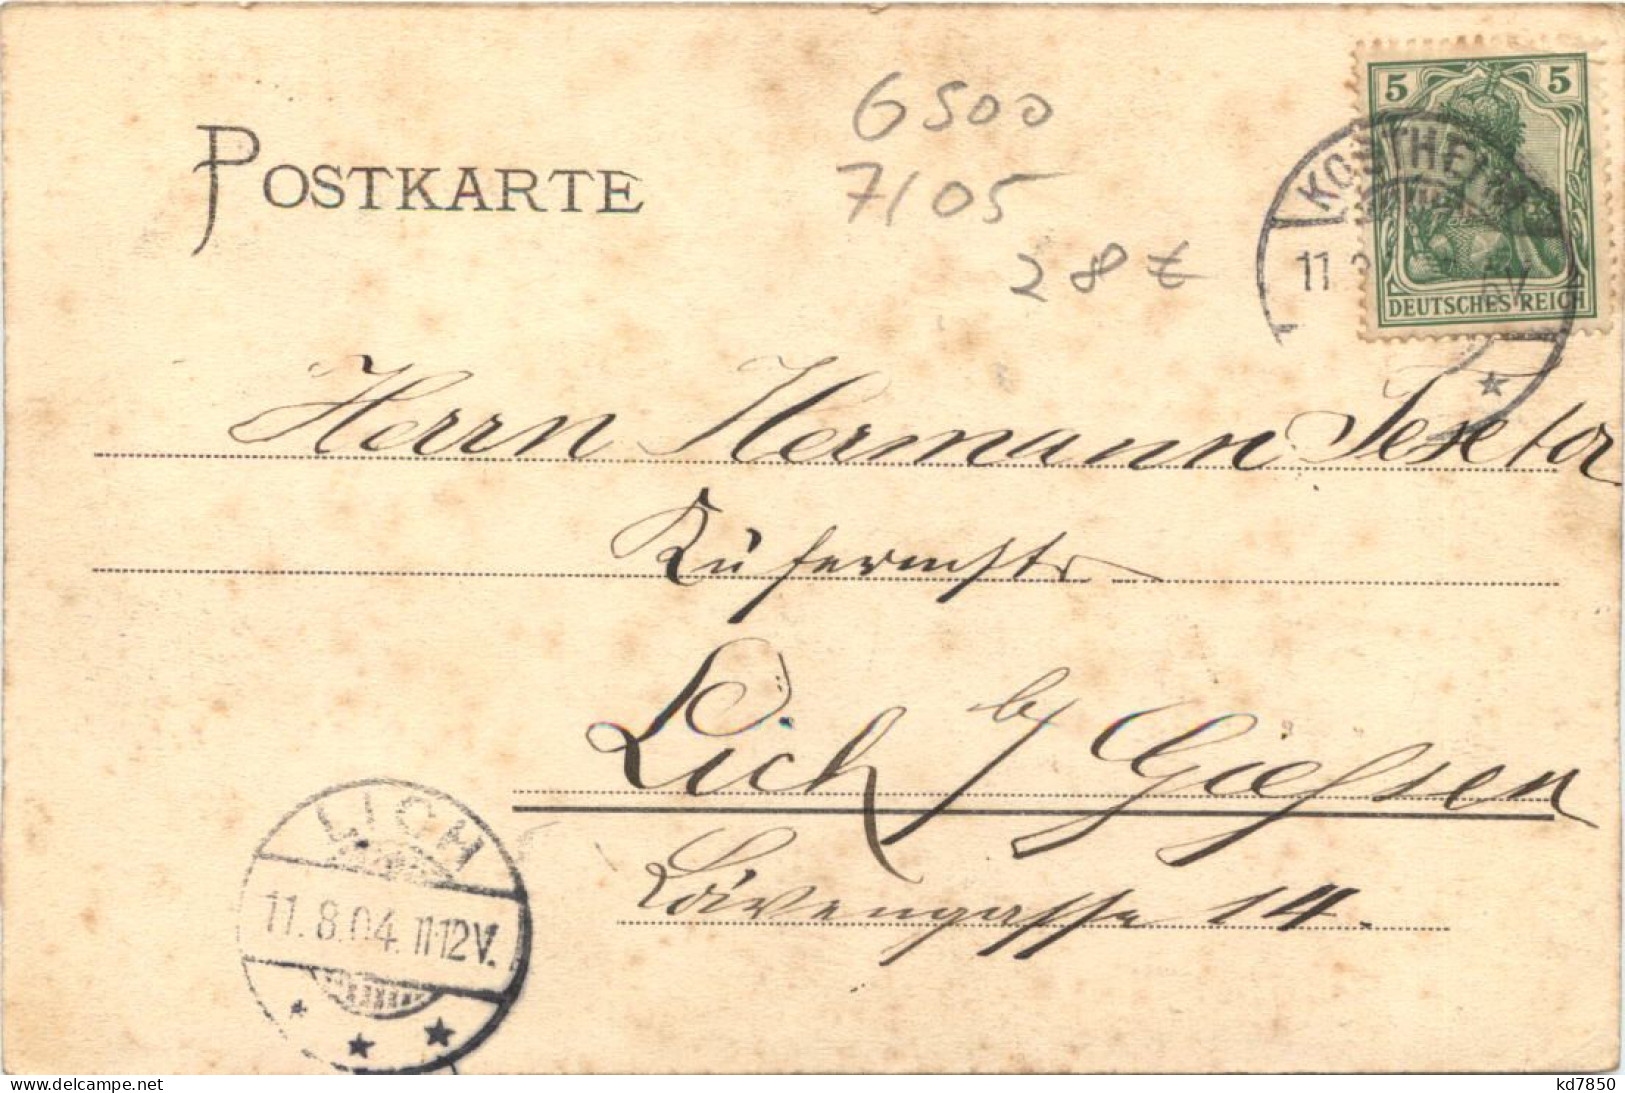 POSTKARTE
6500
7/05
28
5 5
DEUTSCHES REICH
KOSTHEIM
11
Herrn Hermann
Küfermstr
Lich b/ Giessen
Löwengasse 14.
LICH
11.8.04. 11-12V.
delcampe.net
kd7850